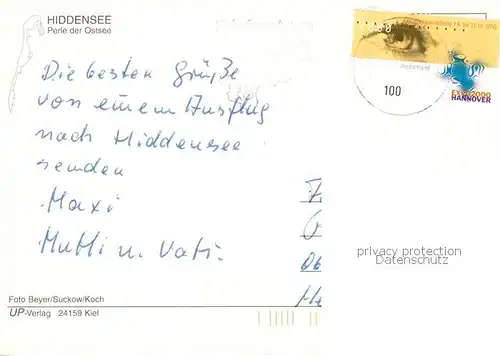 HIDDENSEE
Perle der Ostsee
Die besten Grüße
von einem Ausflug
nach Hiddensee
senden
Maxi
Mutti u. Vati.
100
Deutschland
EXPO2000
HANNOVER
privacy protection
Datenschutz
Foto Beyer/Suckow/Koch
UP-Verlag 24159 Kiel